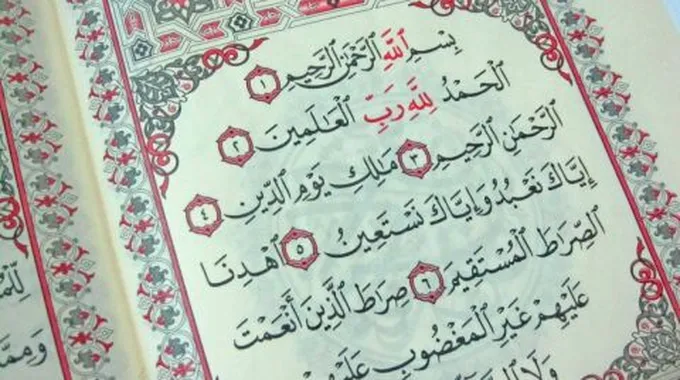 بِسْمِ ٱللَّهِ ٱلرَّحْمَٰنِ ٱلرَّحِيمِ ١
ٱلْحَمْدُ لِلَّهِ رَبِّ ٱلْعَٰلَمِينَ ٢
ٱلرَّحْمَٰنِ ٱلرَّحِيمِ ٣ مَٰلِكِ يَوْمِ ٱلدِّينِ ٤
إِيَّاكَ نَعْبُدُ وَإِيَّاكَ نَسْتَعِينُ ٥ ٱهْدِنَا
ٱلصِّرَٰطَ ٱلْمُسْتَقِيمَ ٦ صِرَٰطَ ٱلَّذِينَ أَنْعَمْتَ
عَلَيْهِمْ غَيْرِ ٱلْمَغْضُوبِ عَلَيْهِمْ
وَلَا